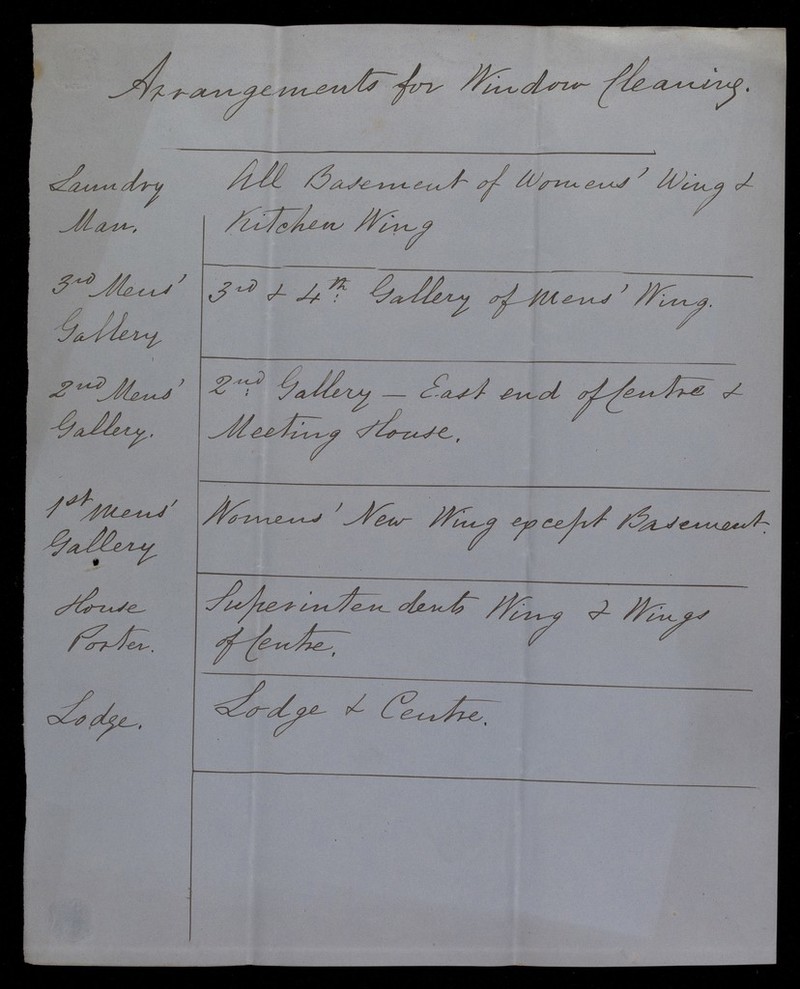 Arrangements for Window Cleaning.
Laundry Man.
All Basement of Womens' Wing &
Kitchen Wing
3rd Mens'
Gallery
3rd & 4th Gallery of Mens' Wing.
2nd Mens'
Gallery.
2nd Gallery — East end of Centre &
Meeting House.
1st Mens'
Gallery
Womens' New Wing except Basement.
House
Porter.
Superintendents Wing & Wings
of Centre.
Lodge.
Lodge & Centre.